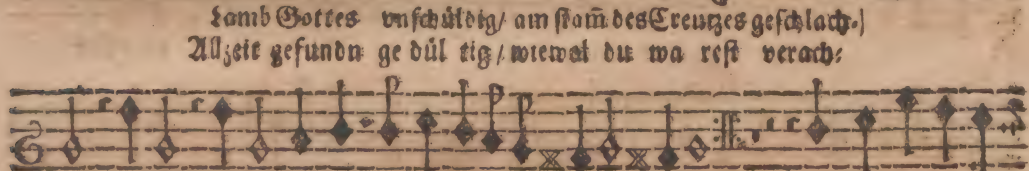 Lamb Gottes vnschüldig/ am stam̃ des Creutzes geschlach-)
Allzeit gefundn ge dül tig/ wiewol du wa rest verach-